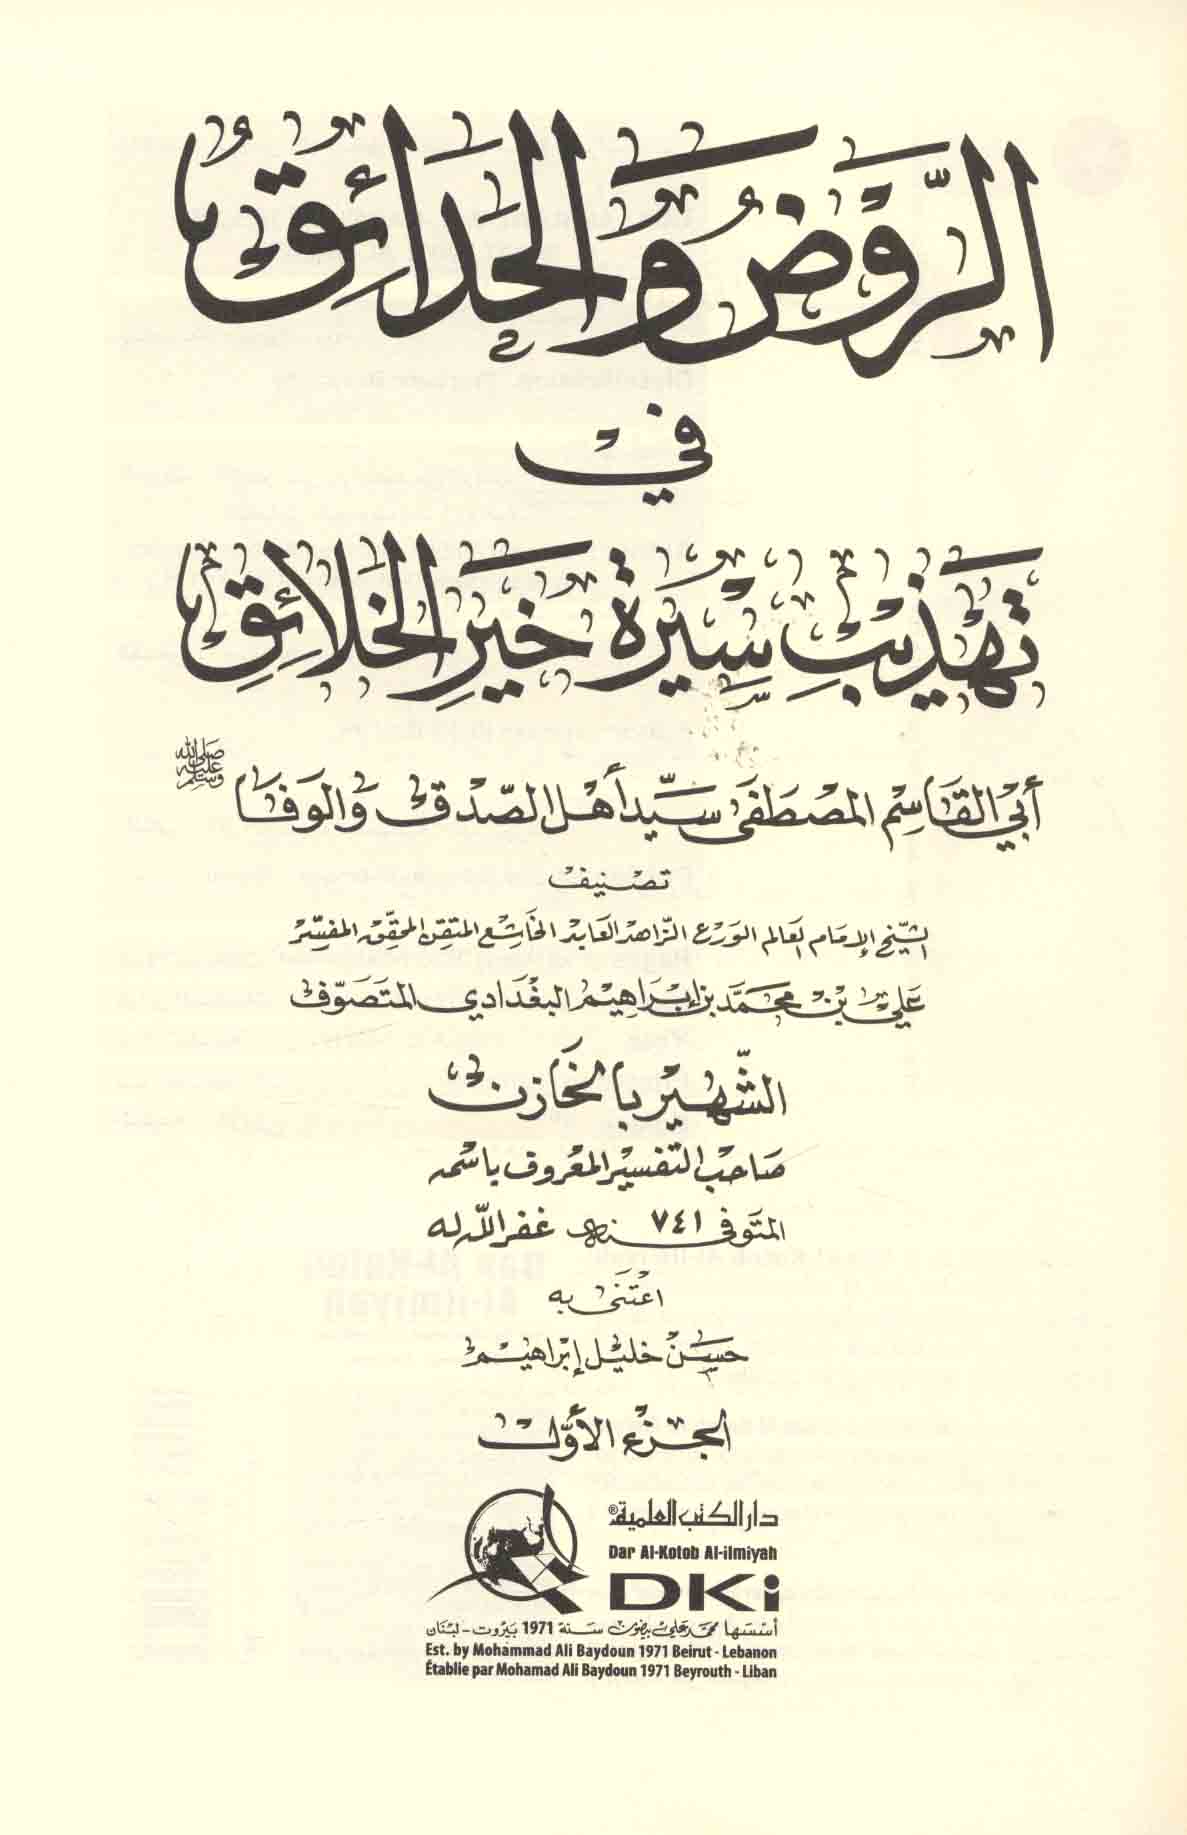 الرَّوْضُ وَالحَدَائِقُ
في
تَهْذِيبِ سِيْرَةِ خَيْرِ الخَلَائِقِ
أَبي القَاسِمِ المصْطَفَى سَيِّد أهْل الصِّدْقِ وَالوَفَا ﷺ
تصنيف
الشيخ الإمام العالم الورع الزاهد العابد الخاشع المتقن المحقق المفسر
عَلي بْن محمَّد بن إبْرَاهِيم البَغْدَادي المتَصَوِّف
الشَّهِير بالخَازن
صَاحب التفسير المعروف باسمه
المتوفى سنة ٧٤١ هـ غفر الله له
اعتنى به
حسن خليل إبراهيم
الجزء الأوّل
دار الكتب العلمية®
Dar Al-Kotob Al-ilmiyah
DKi
أسسها محمد علي بيضون سنة 1971 بيروت - لبنان
Est. by Mohammad Ali Baydoun 1971 Beirut - Lebanon
Établie par Mohamad Ali Baydoun 1971 Beyrouth - Liban